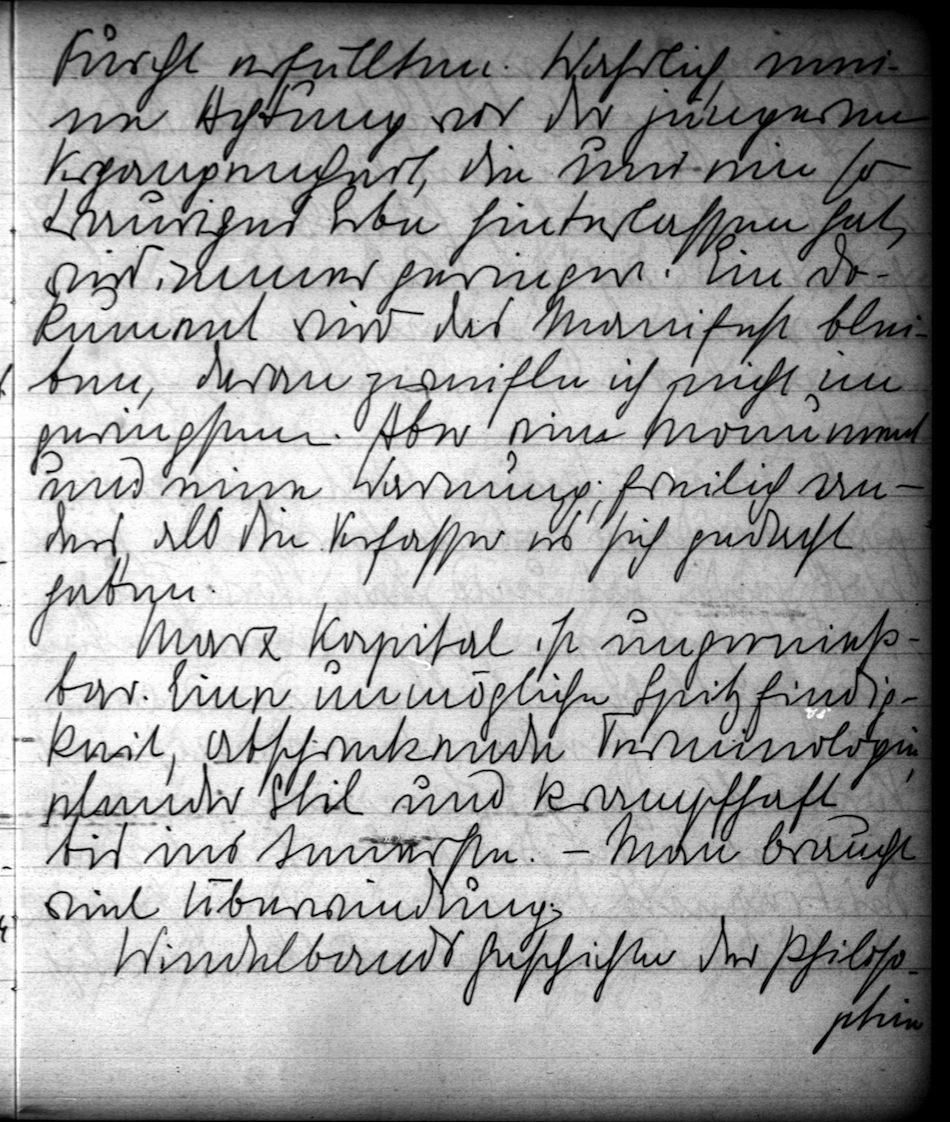 Furcht erfüllten. Wahrlich, mei-
ne Achtung vor der jüngeren
Vergangenheit, die uns ein so
trauriges Erbe hinterlassen hat,
wird immer geringer. Ein Do-
kument wird das Manifest blei-
ben, daran zweifle ich nicht im
geringsten. Aber eine Monument
und eine Warnung; freilich an-
ders, als die Verfasser es sich gedacht
haben.
Marx Kapital ist ungenieß-
bar. Eine unmögliche Spitzfindig-
keit, abschreckende Terminologie,
elender Stil und krampfhaft
bis ins Innerste. – Man braucht
viel Überwindung.
Windelbands Geschichte der Philoso-
phie